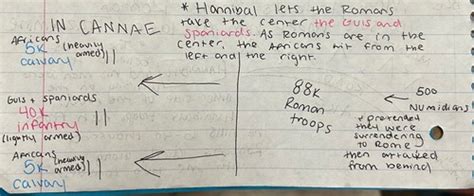 IN CANNAE
* Hannibal lets the Romans
take the center the Guls and
spaniards. As Romans are in the
center, the Africans hit from the
left and the right.
Africans
5K (heavily
armed)
calvary
Guls + spaniards
40K
infantry
(lightly armed)
Africans
5K (heavily
armed)
calvary
88K
Roman
troops
500
Numidians
* pretended
they were
surrendering
to Rome
then attacked
from behind